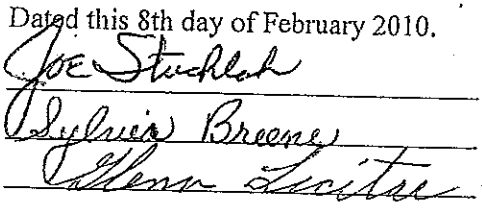 Dated this 8th day of February 2010.
Joe Stuchlak
Sylvia Breene
Glenn